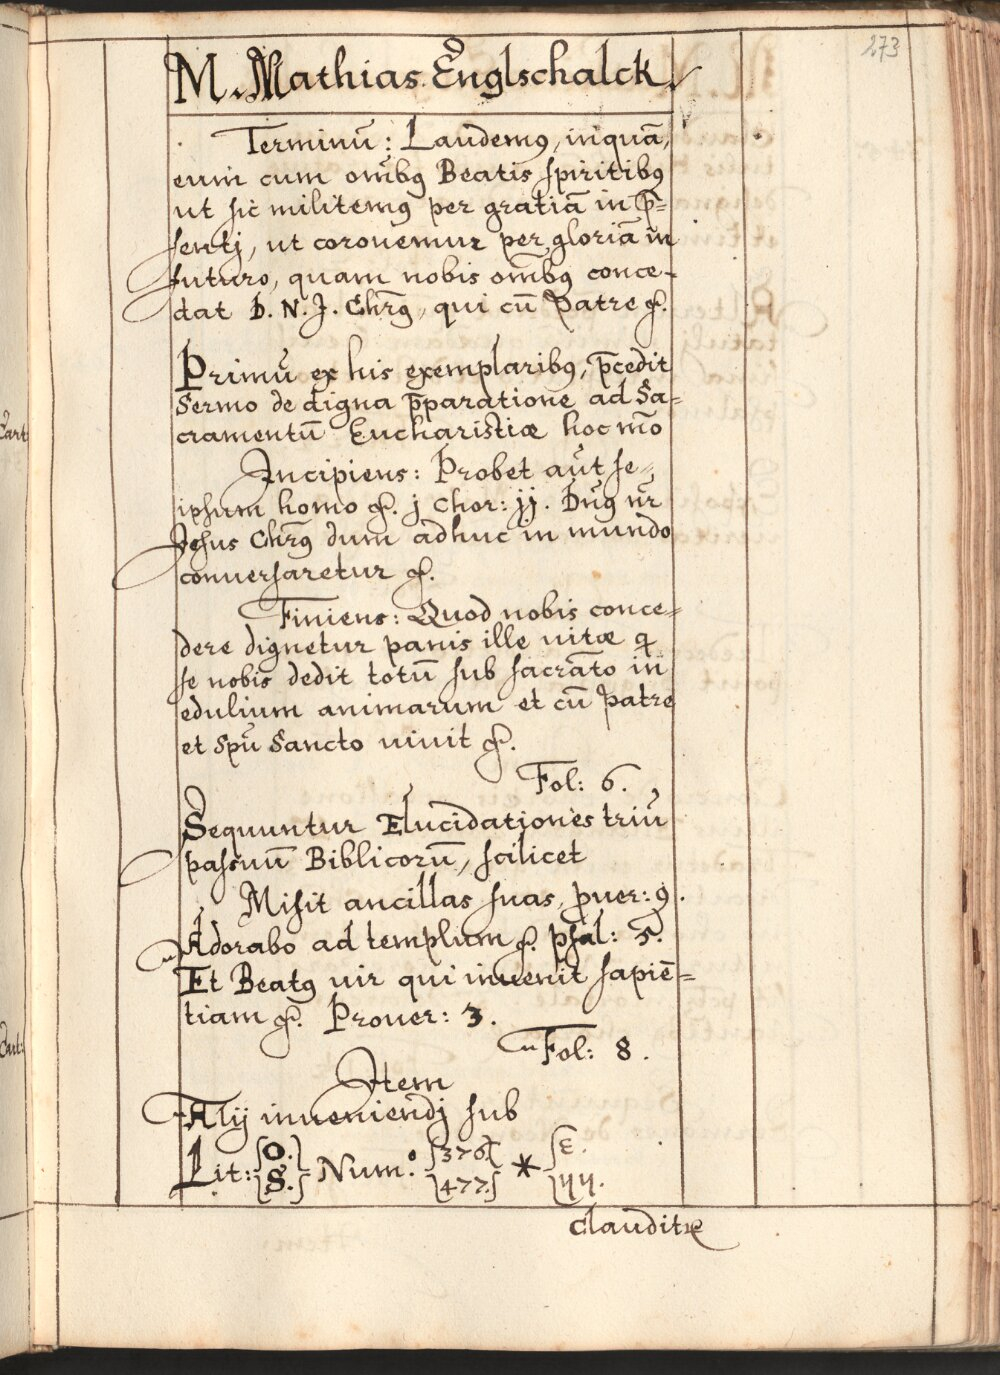 273
M. Mathias Englschalck.
Terminū: Laudemꝯ, inquā,
eum cum om̄ibꝯ Beatis spiritibꝯ
ut sic militemꝯ per gratiā in p̄=
sentj, ut coronemur per gloriā in
futuro, quam nobis om̄bꝯ conce=
dat D. N. J. Chr̄ꝯ, qui cū Patre &.
Primū ex his exemplaribꝯ, p̄cedit
Sermo de digna p̄paratione ad Sa=
cramentū Eucharistiæ hoc m̄o
Incipiens: Probet aūt se=
ipsum homo &. j Chor: jj. Dn̄ꝯ nr̄
Jesus Chr̄ꝯ dum adhuc in mundo
conuersaretur &.
Finiens: Quod nobis conce=
dere dignetur panis ille uitæ q̄
se nobis dedit totū sub sacrāto in
edulium animarum et cū Patre
et Spū Sancto uiuit &.
Fol: 6.
Sequuntur Elucidationes triū
passuū Biblicorū, scilicet
Misit ancillas suas, puer: 9.
Adorabo ad templum &. psal: 5.
Et Beatꝯ uir qui inuenit sapiē=
tiam &. Prouer: 3.
Fol: 8.
Item
Alij inueniendj sub
Lit: {O. S.} Num: {376 477.} * { ε. yy.
Clauditr
Cart: